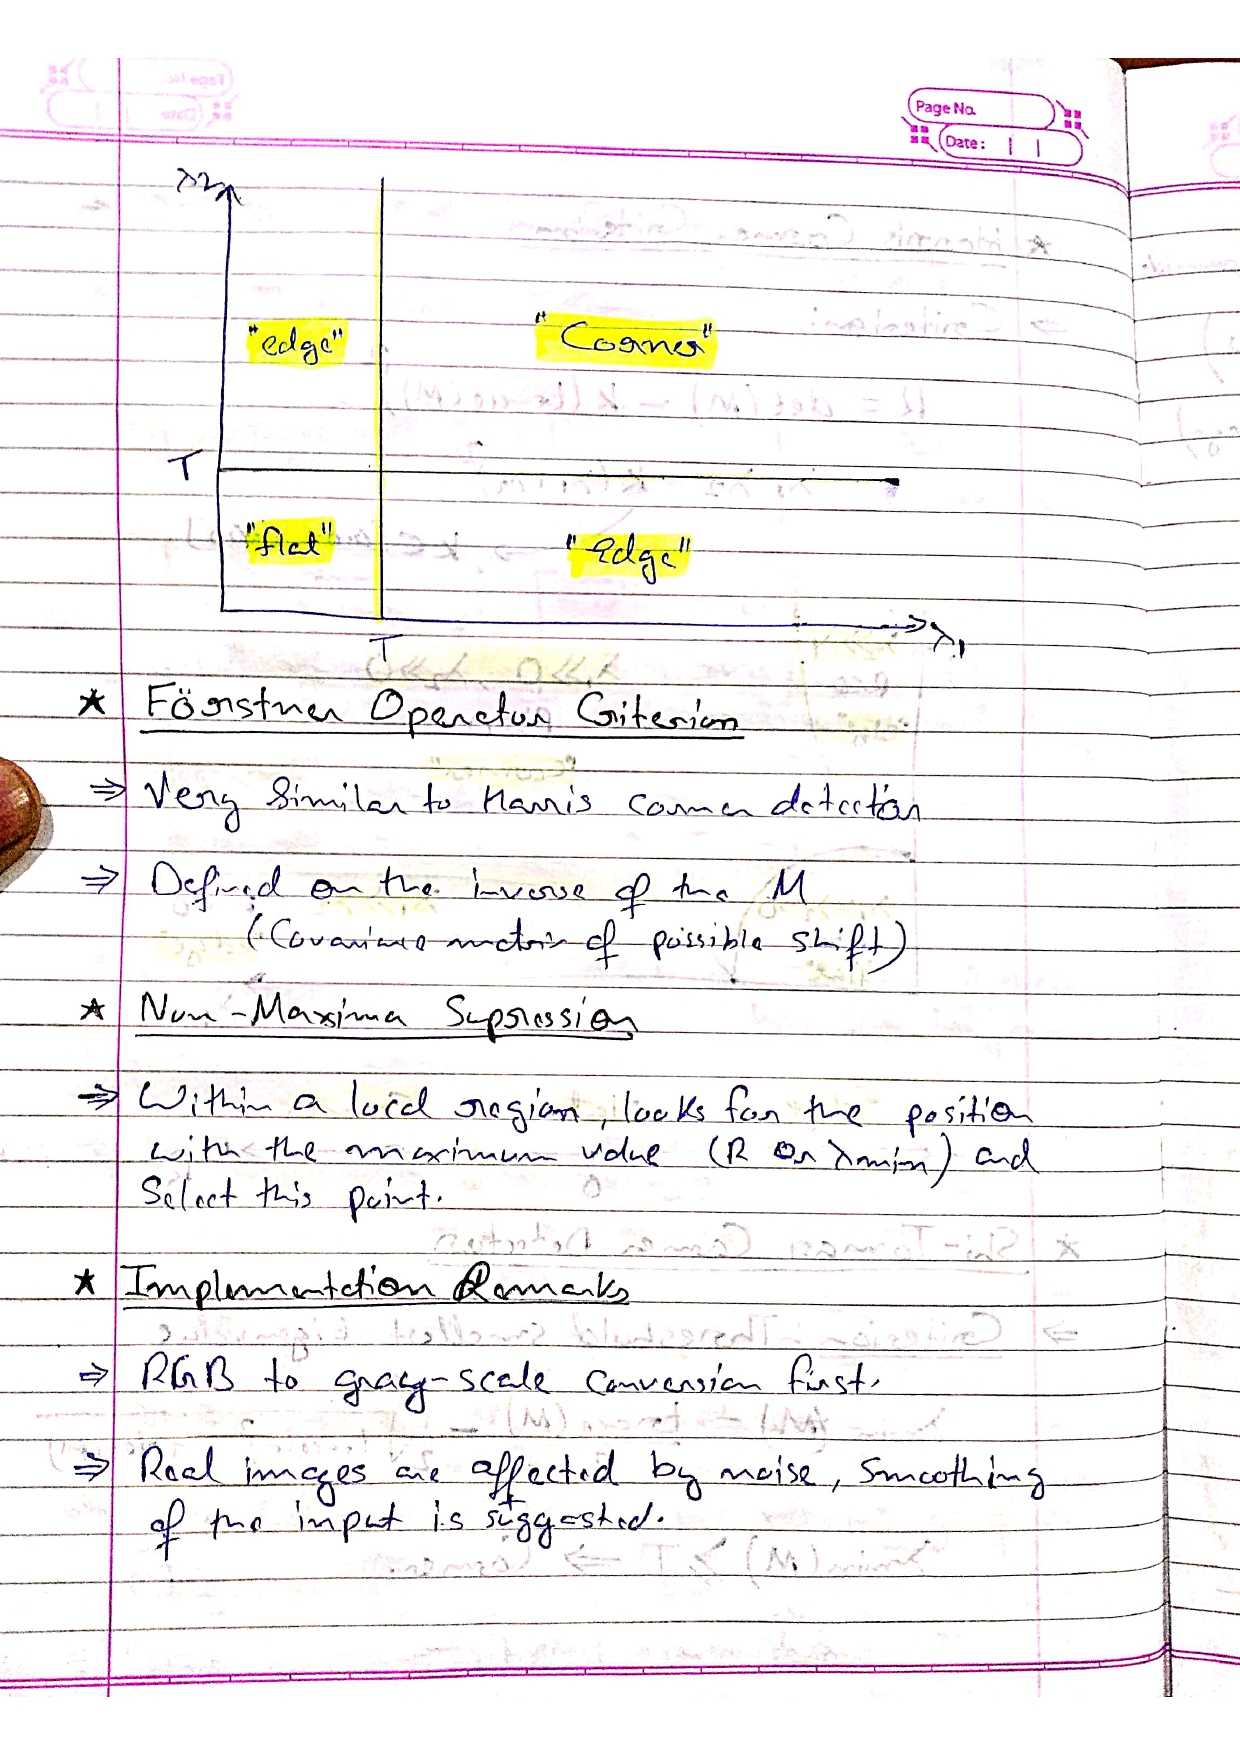 Page No.
Date:
λ2
"edge"
"Corner"
T
"flat"
"edge"
T
λ1
★ Förstner Operator Criterion
⇒ Very Similar to Harris corner detection
⇒ Defined on the inverse of the M
(Covariance matrix of possible shift)
★ Non-Maxima Supression
⇒ Within a local region, looks for the position
with the maximum value (R or λmin) and
Select this point.
★ Implementation Remarks
⇒ RGB to gray-scale conversion first.
⇒ Real images are affected by noise, smoothing
of the input is suggested.